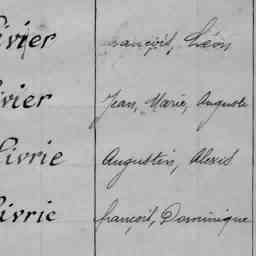 ivier François, Léon
ivier Jean, Marie, Auguste
ivrie Augustin, Alexis
ivrie François, Dominique